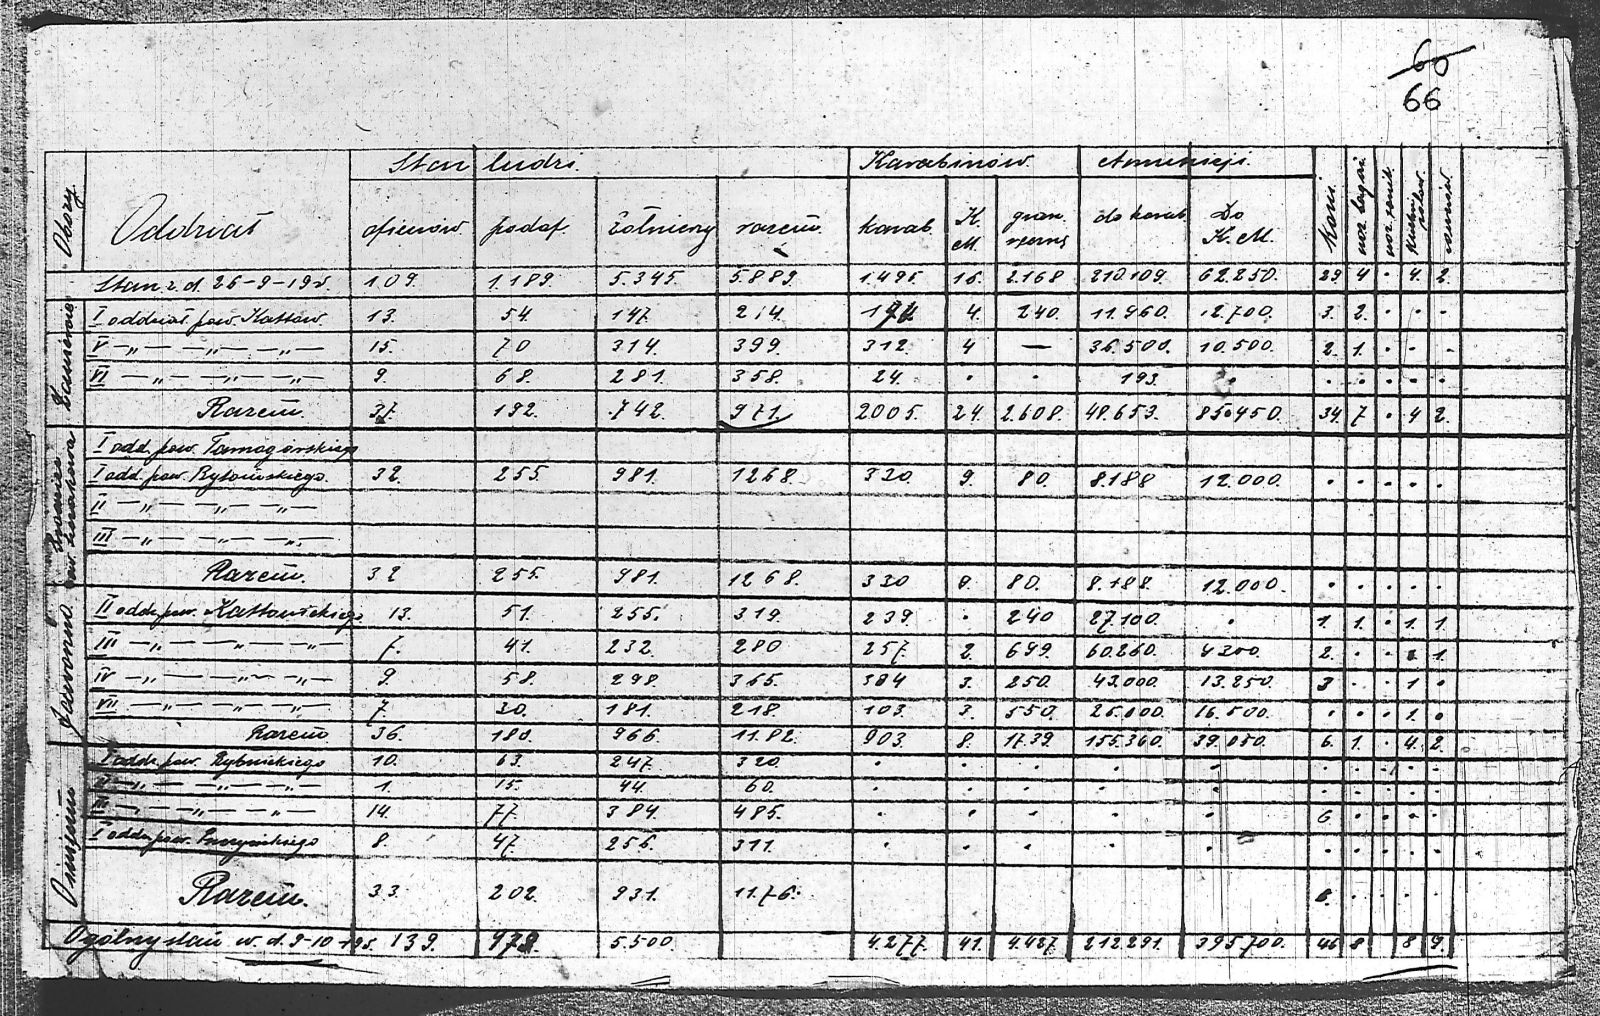 60
66
Obozy
Oddział
Stan ludzi.
Karabinów.
Amunicji.
oficerów
podof.
żołnierzy
razem
karab.
K. M.
gran. ręczne
do karab.
Do K. M.
koni
kuchni polow.
Stan z d. 26-9-19r. 109. 1.189. 5.345. 5.889. 1.495. 16. 2.168 210.109. 62.250. 29 4 . 4. 2.
I oddział pow. Katow. 13. 54. 147. 214. 174 4. 240. 11.960. 12.700. 3. 2. . . .
V —„— —„— —„— 15. 70 314. 399. 312. 4 — 36.500. 10.500. 2. 1. . . .
VI —„— —„— —„— 9. 68. 281. 358. 24. . . 193. . . . . . .
Razem. 37. 192. 742. 971. 2005. 24. 2.608. 48.653. 85.450. 34. 7 . 4 2.
I odd. pow. Tarnogórskiego
I odd. pow. Bytomskiego. 32. 255. 981. 1268. 330. 9. 80. 8.188 12.000. . . . . .
II —„— —„— —„—
III —„— —„— —„—
Razem. 32 255. 981. 1268. 330 9. 80. 8.188. 12.000. . . . . .
II oddz. pow. Katowickiego 13. 51. 255. 319. 239 . 240 27.100. . 1. 1. . 1. 1
III —„— —„— —„— 7. 41. 232. 280 257. 2. 699. 60.260. 4200. 2. . . 1 1.
IV —„— —„— —„— 9. 58. 298. 365. 304 3. 250. 43.000. 13.250. 3 . . 1 .
VII —„— —„— —„— 7. 30. 181. 218. 103. 3. 550. 25.000. 16.500. . . . 1. .
Razem 36. 180. 966. 1182. 903. 8. 1739. 155.360. 39.050. 6. 1. . 4. 2.
I oddz. pow. Rybnickiego 10. 63. 247. 320. . . . . . . . . . .
II —„— —„— —„— 1. 15. 44. 60. . . . . . . . . . .
III —„— —„— —„— 14. 77. 384. 485. . . . . . 6 . . . .
I oddz. pow. 8. 47. 256. 311. . . . . . . . . . .
Razem. 33. 202. 931. 1176. 6. . . .
Ogólny stan w. d. 9-10-19r. 139. 979. 5.500. 4.277. 41. 4.427. 212.291. 395700. 46 8 8 9.
Jaworzno
Oświęcim